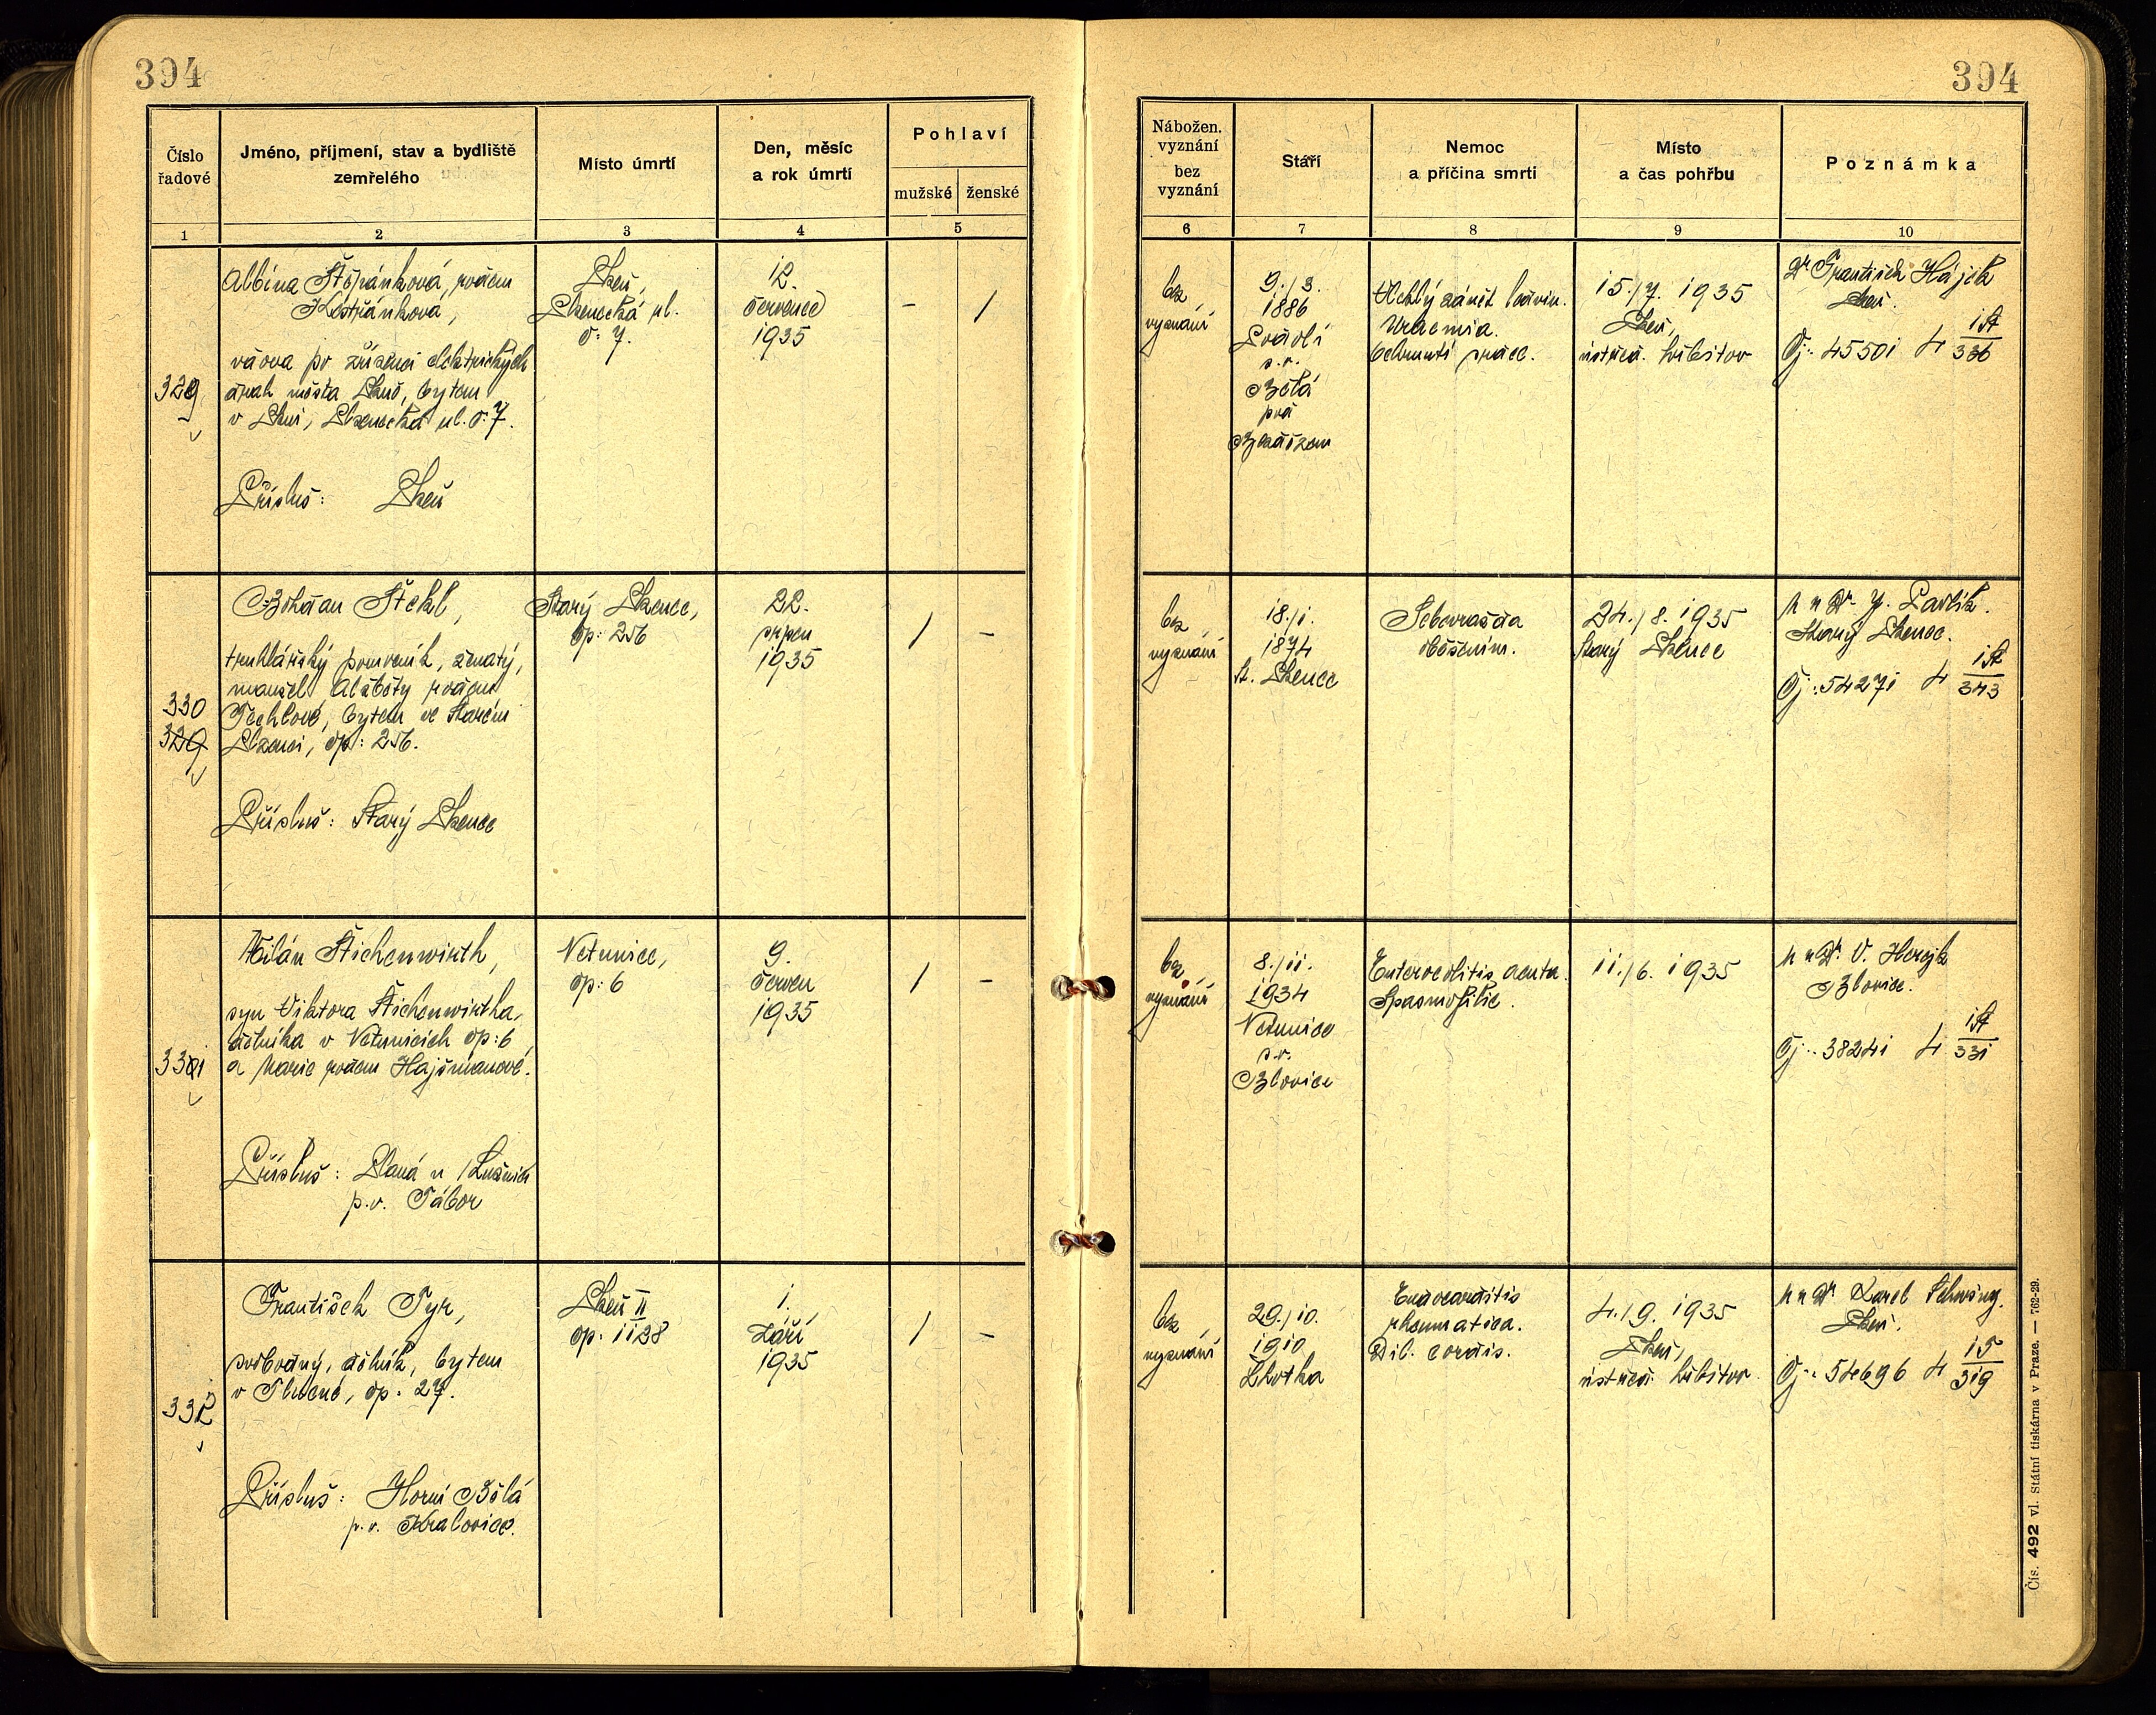 394
394
Číslo
řadové
Jméno, příjmení, stav a bydliště
zemřelého
Místo úmrtí
Den, měsíc
a rok úmrtí
Pohlaví
mužské
ženské
Nábožen.
vyznání
bez
vyznání
Stáří
Nemoc
a příčina smrti
Místo
a čas pohřbu
Poznámka
1
2
3
4
5
6
7
8
9
10
329
Albina Štěpánková, rozem
vdova po zřízenci elektrických
drah města Plzně, bytem
v Plzni, Plzenecká ul. č: 7.
Přísluš: Plzeň
Plzeň,
Plzenecká ul.
č: 7.
12.
červenec
1935
-
/
bez
vyznání
9./3.
1886
p.v.
Bělá
pod
Bezdězem
Vleklý zánět ledvin.
Uraemia.
Ochrnutí srdce.
15./7. 1935
Plzeň,
ústřed. hřbitov
Dr František Hájek
Plzeň.
Čj: 45501 4 iŠt
336
330
329
Bohdan Štekl,
truhlářský pomocník, ženatý,
manžel Alžběty rozené
Techlové, bytem ve Starém
Plzenci, čp: 256.
Přísluš: Starý Plzenec
Starý Plzenec,
čp: 256
22.
srpen
1935
/
-
bez
vyznání
18./1.
1874
St. Plzenec
Sebevražda
oběšením.
24./8. 1935
Starý Plzenec
MUDr. J. Pavlík.
Starý Plzenec.
Čj: 54271 4 iŠt
343
331
Milán Štichenwirth,
syn Viktora Štichenwirtha,
dělníka v Netunicích čp: 6
a Marie rozené Hajšmanové.
Přísluš: Planá n/Lužnicí
p.v. Tábor
Netunice,
čp: 6
9.
červen
1935
/
-
bez
vyznání
8./11.
1934
Netunice
p.v.
Blovice
Enterocolitis acuta.
Spasmofilie.
11./6. 1935
MUDr. V. Herejk
Blovice.
Čj: 38241 4 iŠt
331
332
František Tyr,
svobodný, dělník, bytem
v Tlucné, čp. 27.
Přísluš: Horní Bělá
p.v. Kralovice.
Plzeň II
čp: 1128
1.
září
1935
/
-
bez
vyznání
29./10.
1910
Lhotka
Endocarditis
rheumatica.
Dil. cordis.
4./9. 1935
Plzeň,
ústřed. hřbitov
MUDr Karel
Plzeň.
Čj: 54696 4 iT
319
Čís. 492 vl. Státní tiskárna v Praze. — 762-29.